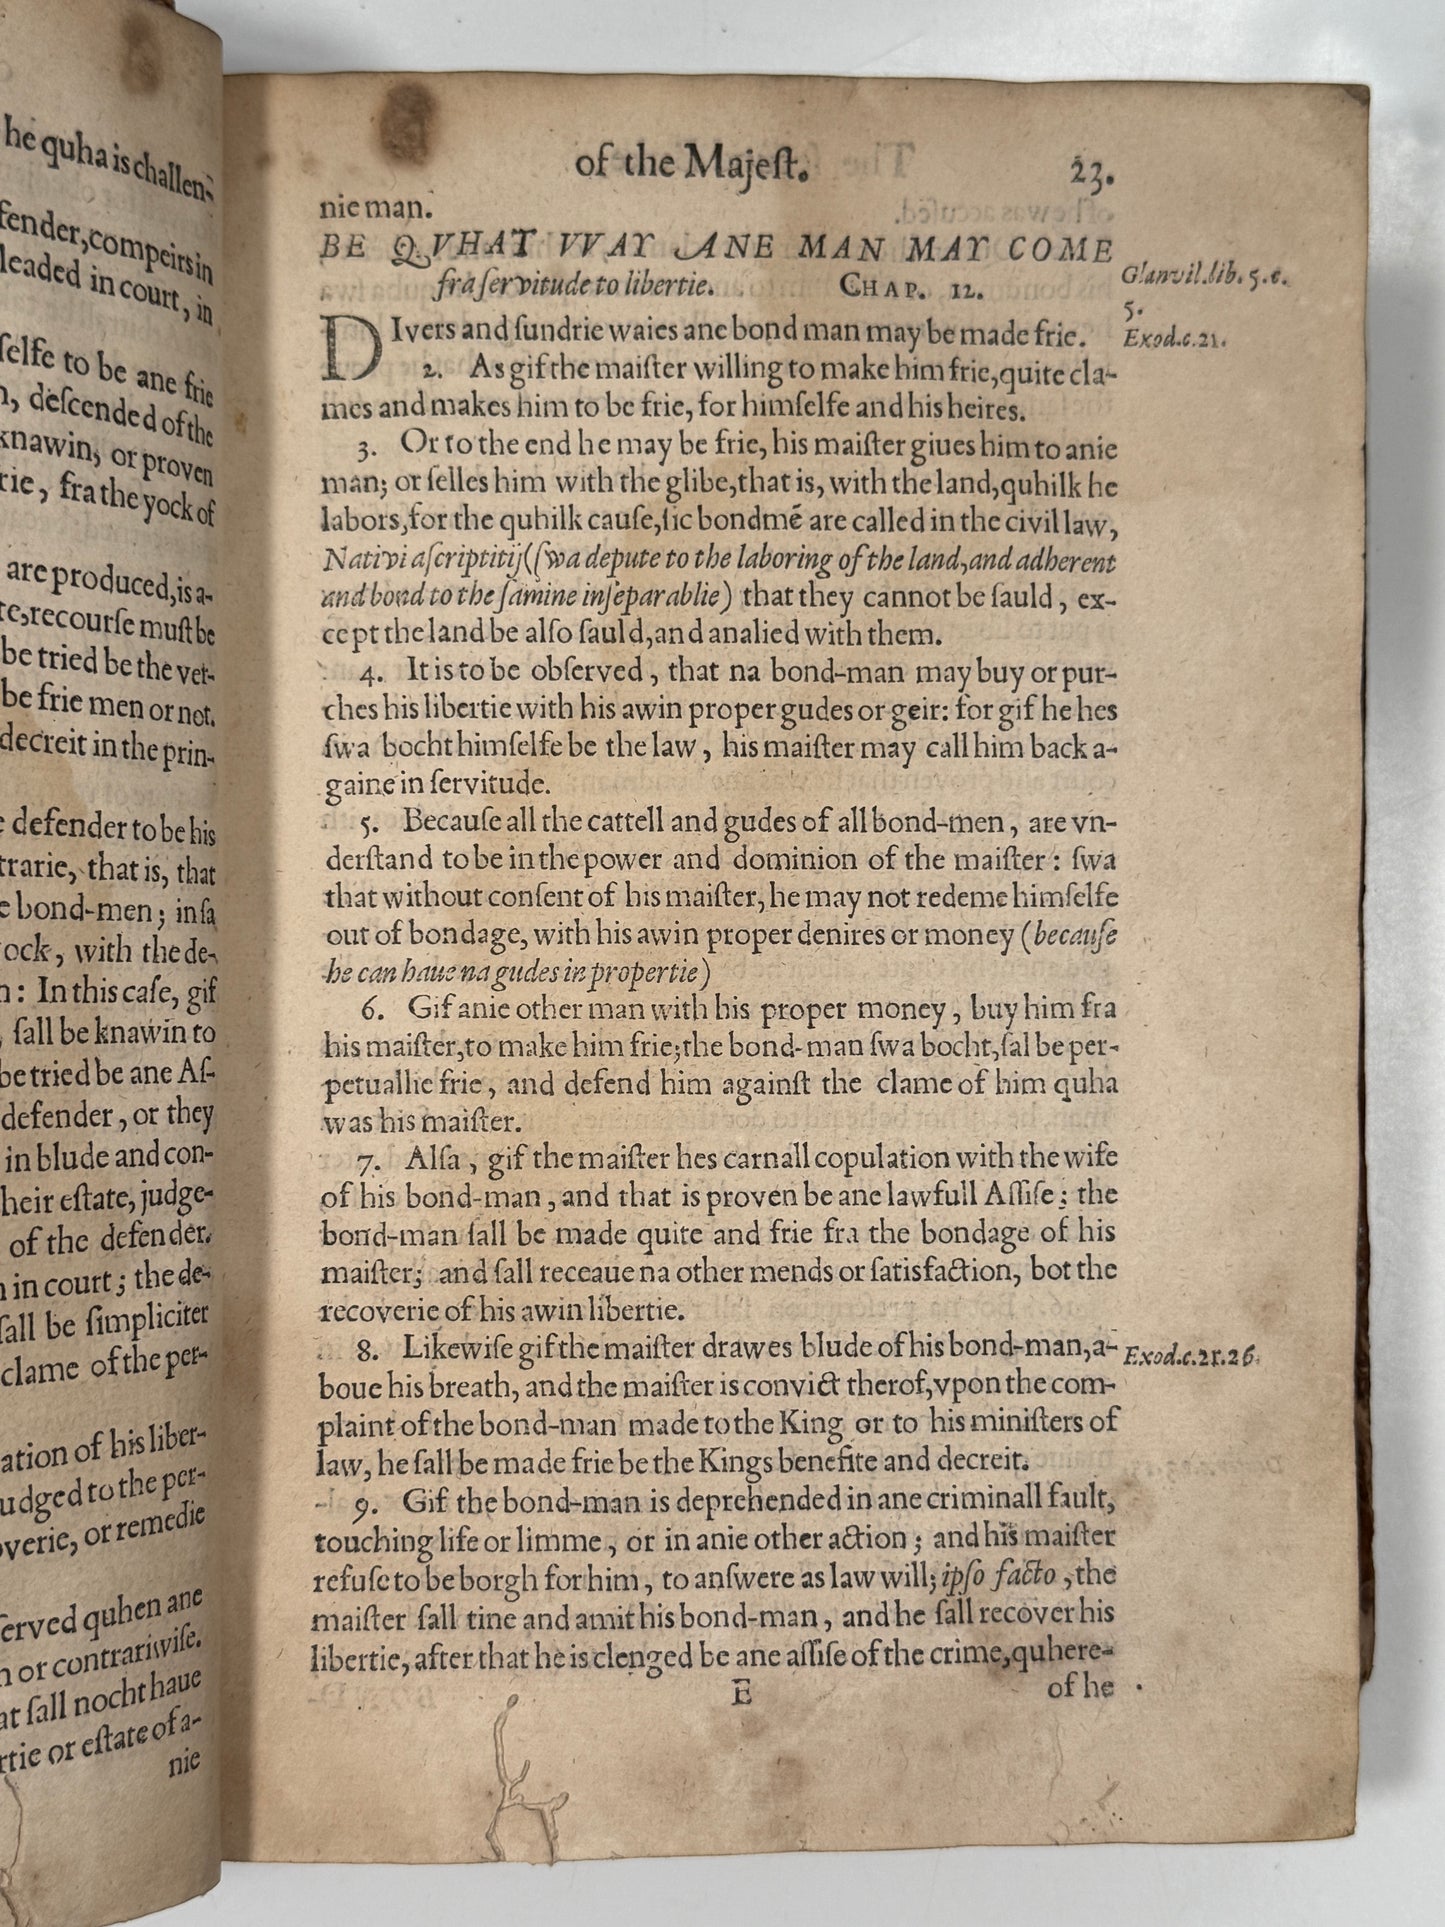 he quha is challen-
fender, compeirs in
leaded in court, in
selfe to be ane frie
descended of the
knawin, or proven
rie, fra the yock of
are produced, is a-
recourse must be
be tried be the ver-
be frie men or not.
decreit in the prin-
defender to be his
trarie, that is, that
bond-men; insa
ock, with the de-
In this case, gif
sall be knawin to
be tried be ane As-
defender, or they
in blude and con-
heir estate, judge-
of the defender.
in court; the de-
sall be simpliciter
clame of the per-
ation of his liber-
udged to the per-
overie, or remedie
served quhen ane
or contrariwise.
at sall nocht haue
rtie or estate of a-
nie
of the Majeſt. 23.
nie man.
BE QVHAT VVAY ANE MAN MAY COME
fra ſervitude to libertie. CHAP. 12.
Glanvil. lib. 5. c.
5.
Exod. c. 21.
DIvers and ſundrie waies ane bond man may be made frie.
2. As gif the maiſter willing to make him frie, quite cla-
mes and makes him to be frie, for himſelfe and his heires.
3. Or to the end he may be frie, his maiſter giues him to anie
man; or ſelles him with the glibe, that is, with the land, quhilk he
labors, for the quhilk cauſe, ſic bondmē are called in the civil law,
Nativi aſcriptitij (ſwa depute to the laboring of the land, and adherent
and bond to the ſamine inſeparablie) that they cannot be ſauld, ex-
cept the land be alſo ſauld, and analied with them.
4. It is to be obſerved, that na bond-man may buy or pur-
ches his libertie with his awin proper gudes or geir: for gif he hes
ſwa bocht himſelfe be the law, his maiſter may call him back a-
gaine in ſervitude.
5. Becauſe all the cattell and gudes of all bond-men, are vn-
derſtand to be in the power and dominion of the maiſter: ſwa
that without conſent of his maiſter, he may not redeme himſelfe
out of bondage, with his awin proper denires or money (becauſe
he can haue na gudes in propertie)
6. Gif anie other man with his proper money, buy him fra
his maiſter, to make him frie; the bond-man ſwa bocht, ſal be per-
petuallie frie, and defend him againſt the clame of him quha
was his maiſter.
7. Alſa, gif the maiſter hes carnall copulation with the wife
of his bond-man, and that is proven be ane lawfull Aſſiſe; the
bond-man ſall be made quite and frie fra the bondage of his
maiſter; and ſall receaue na other mends or ſatisfaction, bot the
recoverie of his awin libertie.
8. Likewiſe gif the maiſter drawes blude of his bond-man, a-
Exod. c. 21. 26.
boue his breath, and the maiſter is convict therof, vpon the com-
plaint of the bond-man made to the King or to his miniſters of
law, he ſall be made frie be the Kings benefite and decreit.
9. Gif the bond-man is deprehended in ane criminall fault,
touching life or limme, or in anie other action; and his maiſter
refuſe to be borgh for him, to anſwere as law will; ipſo facto, the
maiſter ſall tine and amit his bond-man, and he ſall recover his
libertie, after that he is clenged be ane aſſiſe of the crime, quhere-
E of he